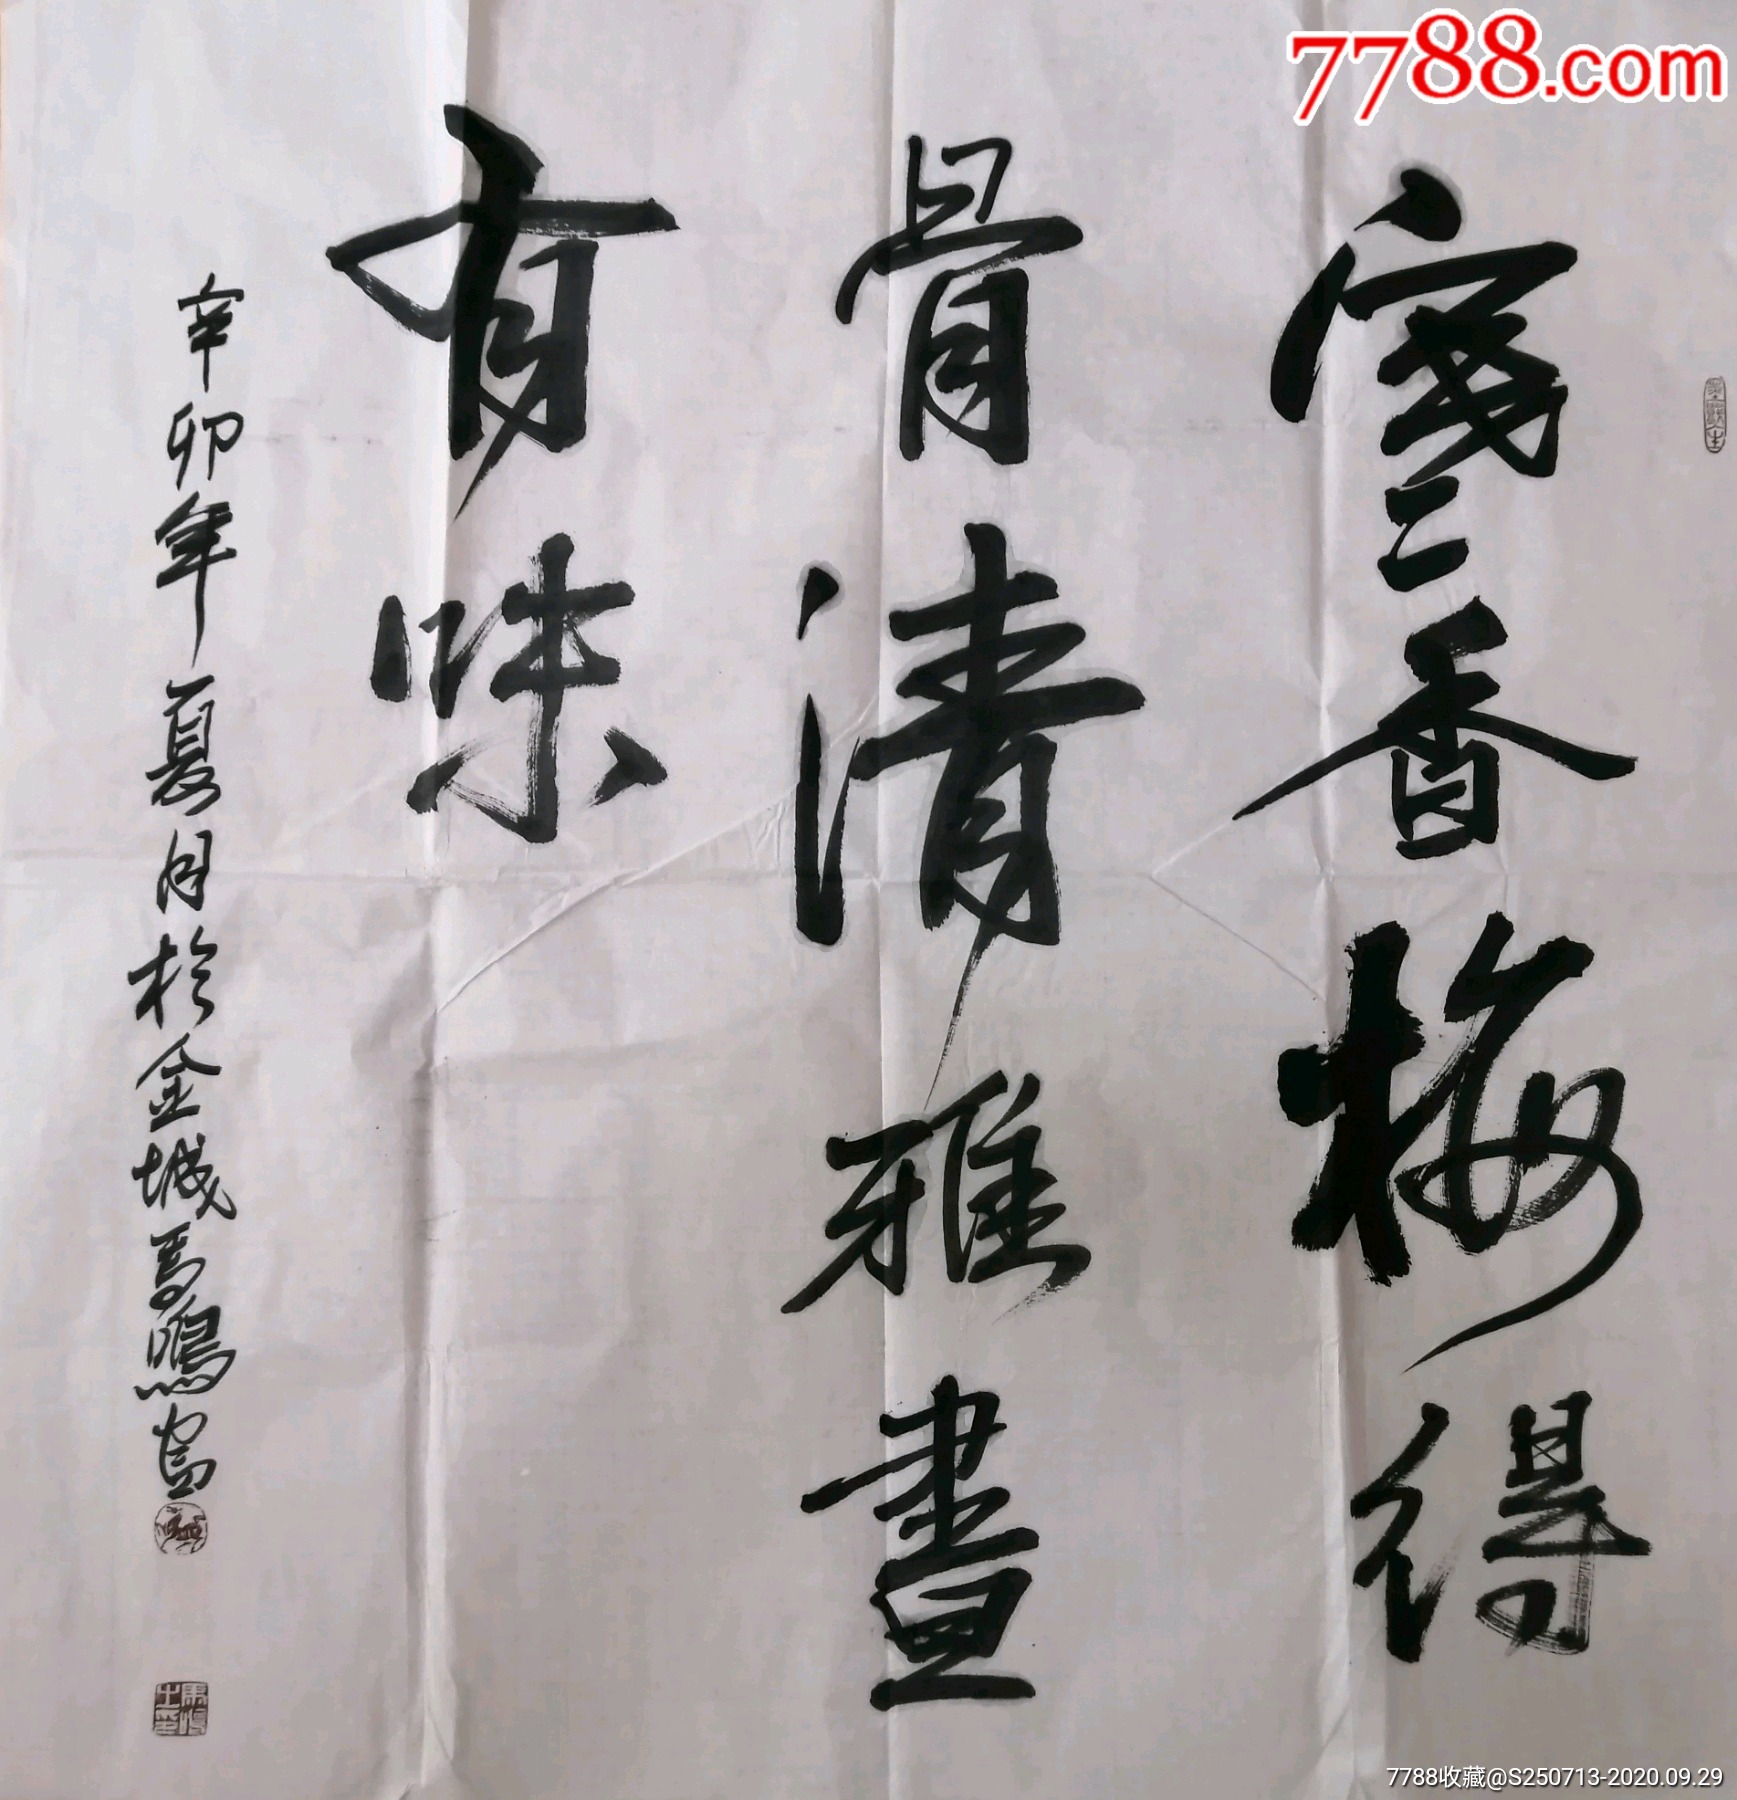 7788.com
寒香梅得
骨清雅畫
有味
辛卯年夏月於金城馬鳴寫
馬鳴之印
7788收藏@S250713-2020.09.29